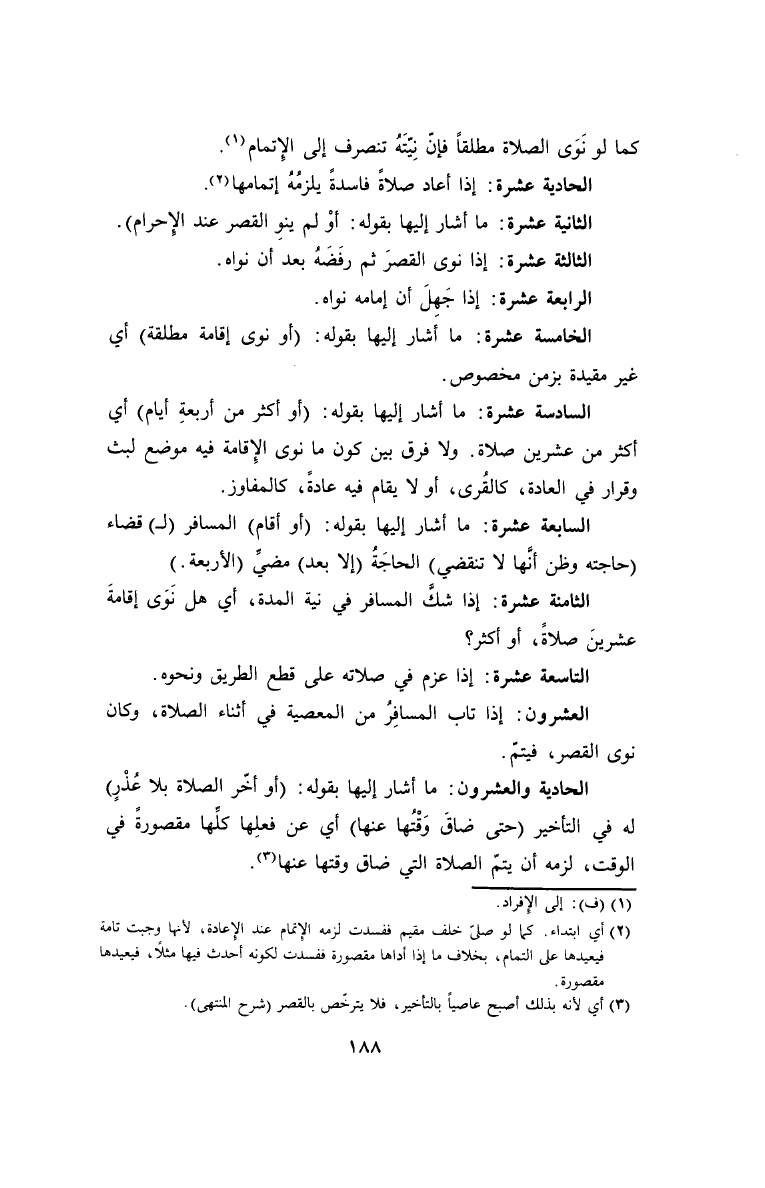 كما لو نَوَى الصلاة مطلقاً فإنّ نِيّتَهُ تنصرف إلى الإتمام(١).
الحادية عشرة: إذا أعاد صلاةً فاسدةً يلزمُهُ إتمامها(٢).
الثانية عشرة: ما أشار إليها بقوله: أوْ لم ينوِ القصر عند الإحرام).
الثالثة عشرة: إذا نوى القصرَ ثم رفَضَهُ بعد أن نواه.
الرابعة عشرة: إذا جَهِلَ أن إمامه نواه.
الخامسة عشرة: ما أشار إليها بقوله: (أو نوى إقامة مطلقة) أي
غير مقيدة بزمن مخصوص.
السادسة عشرة: ما أشار إليها بقوله: (أو أكثر من أربعةِ أيام) أي
أكثر من عشرين صلاة. ولا فرق بين كون ما نوى الإقامة فيه موضع لبث
وقرار في العادة، كالقُرى، أو لا يقام فيه عادةً، كالمفاوز.
السابعة عشرة: ما أشار إليها بقوله: (أو أقام) المسافر (لـ) قضاء
(حاجته وظن أنَّها لا تنقضي) الحاجَةُ (إلا بعد) مضيِّ (الأربعة.)
الثامنة عشرة: إذا شكَّ المسافر في نية المدة، أي هل نَوَى إقامةَ
عشرينَ صلاةً، أو أكثر؟
التاسعة عشرة: إذا عزم في صلاته على قطع الطريق ونحوه.
العشرون: إذا تاب المسافِرُ من المعصية في أثناء الصلاة، وكان
نوى القصر، فيتمّ.
الحادية والعشرون: ما أشار إليها بقوله: (أو أخّر الصلاة بلا عُذْرٍ)
له في التأخير (حتى ضاقَ وَقْتُها عنها) أي عن فعلِها كلِّها مقصورةً في
الوقت، لزمه أن يتمّ الصلاة التي ضاق وقتها عنها(٣).
(١) (ف): إلى الإفراد.
(٢) أي ابتداء. كما لو صلىّ خلف مقيم ففسدت لزمه الإتمام عند الإعادة، لأنها وجبت تامة
فيعيدها على التمام، بخلاف ما إذا أداها مقصورة ففسدت لكونه أحدث فيها مثلًا، فيعيدها
مقصورة.
(٣) أي لأنه بذلك أصبح عاصياً بالتأخير، فلا يترخّص بالقصر (شرح المنتهى).
١٨٨